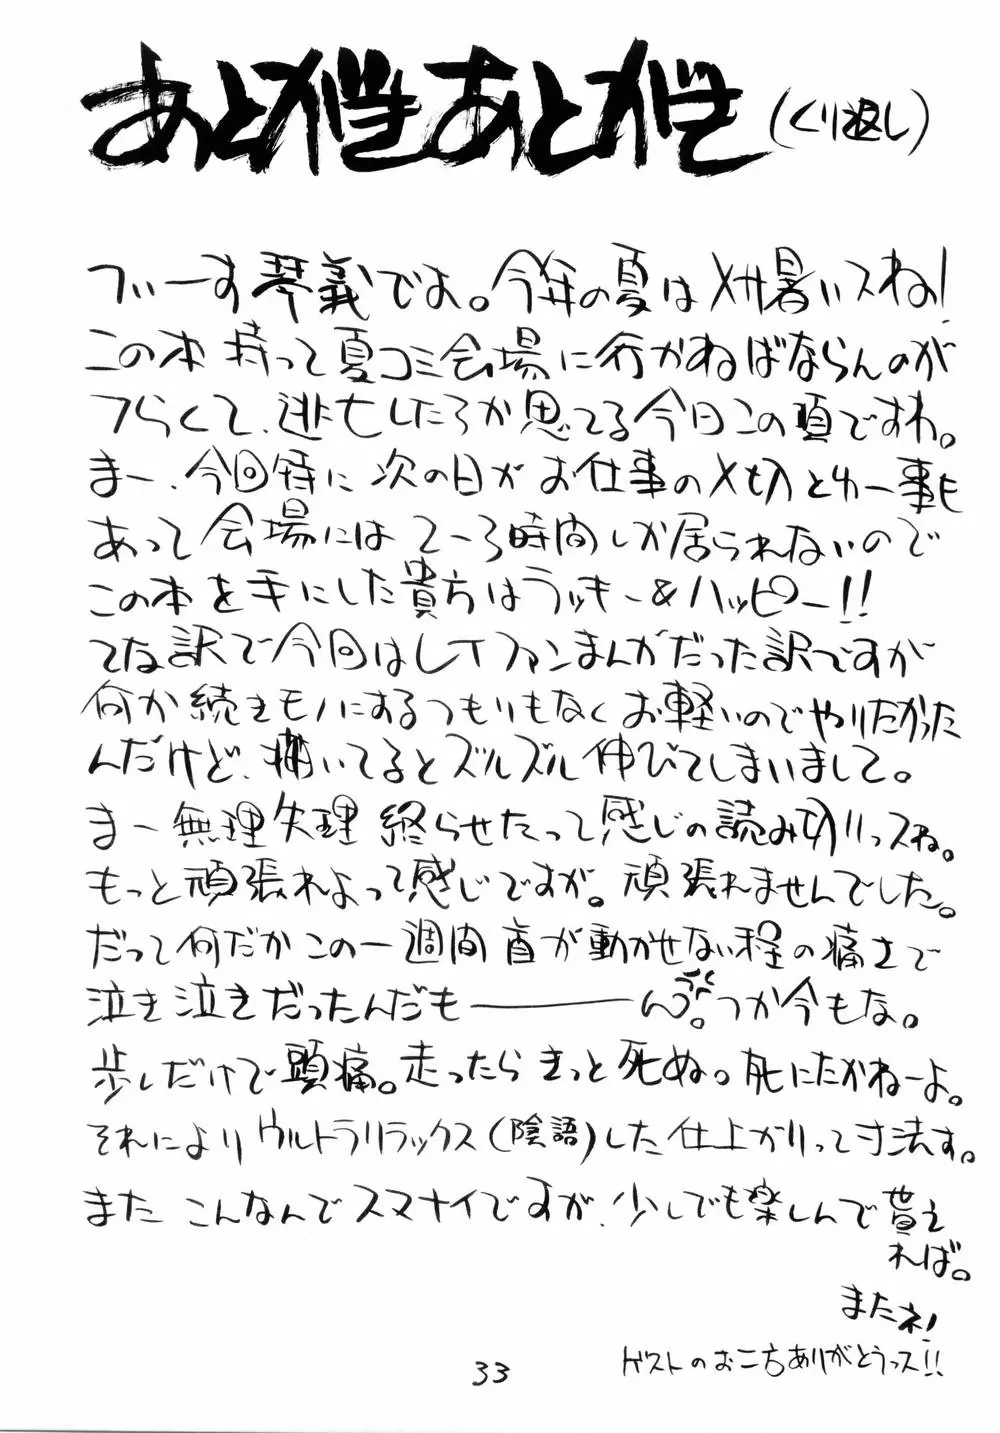 あとがきあとがき(くり返し)
づぃーす琴義でよ。今年の夏はメサ暑いスね!
この本持って夏コミ会場に行かねばならんのが
つらくて、逃亡したろか思てる今日この頃ですわ。
まー、今回特に次の日がお仕事の〆切とゆー事も
あって会場には2~3時間しか居られないので
この本を手にした貴方はラッキー&ハッピー!!
てな訳で今回はレイファンまんがだった訳ですが
何か続きモノにするつもりもなくお軽いのでやりたかった
んだけど、描いてるとズルズル伸びてしまいまして。
まー無理矢理終らせたって感じの読み切りっスね。
もっと頑張れよって感じですが。頑張れませんでした。
だって何だかこの一週間首が動かせない程の痛さで
泣き泣きだったんだも――ん。つか今もな。
歩くだけで頭痛。走ったらきっと死ぬ。死にたかねーよ。
それによりウルトラリラックス(陰語)した仕上がりって寸法す。
また こんなんでスマナイですが、少しでも楽しんで貰え
れば。
またネ!
ゲストのお二方ありがとうっス!!
33